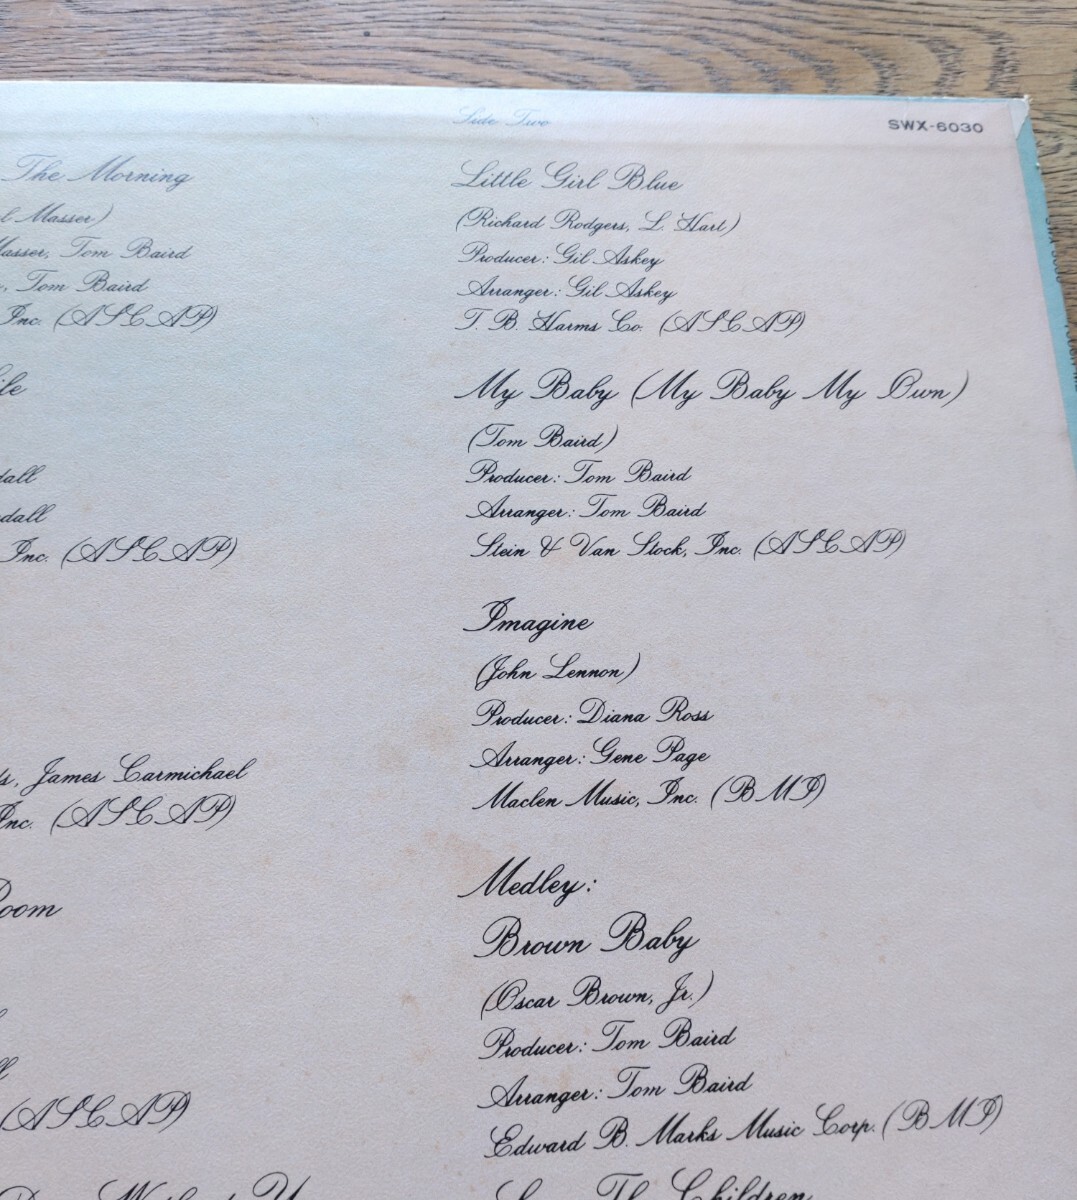 The Morning
l Masser)
Masser, Tom Baird
, Tom Baird
Inc. (ASCAP)
dall
dall
Inc. (ASCAP)
James Carmichael
Inc. (ASCAP)
Room
(ASCAP)
Side Two
SWX-6030
Little Girl Blue
(Richard Rodgers, L. Hart)
Producer: Gil Askey
Arranger: Gil Askey
T. B. Harms Co. (ASCAP)
My Baby (My Baby My Own)
(Tom Baird)
Producer: Tom Baird
Arranger: Tom Baird
Stein & Van Stock, Inc. (ASCAP)
Imagine
(John Lennon)
Producer: Diana Ross
Arranger: Gene Page
Maclen Music, Inc. (BMI)
Medley:
Brown Baby
(Oscar Brown, Jr.)
Producer: Tom Baird
Arranger: Tom Baird
Edward B. Marks Music Corp. (BMI)
Save The Children